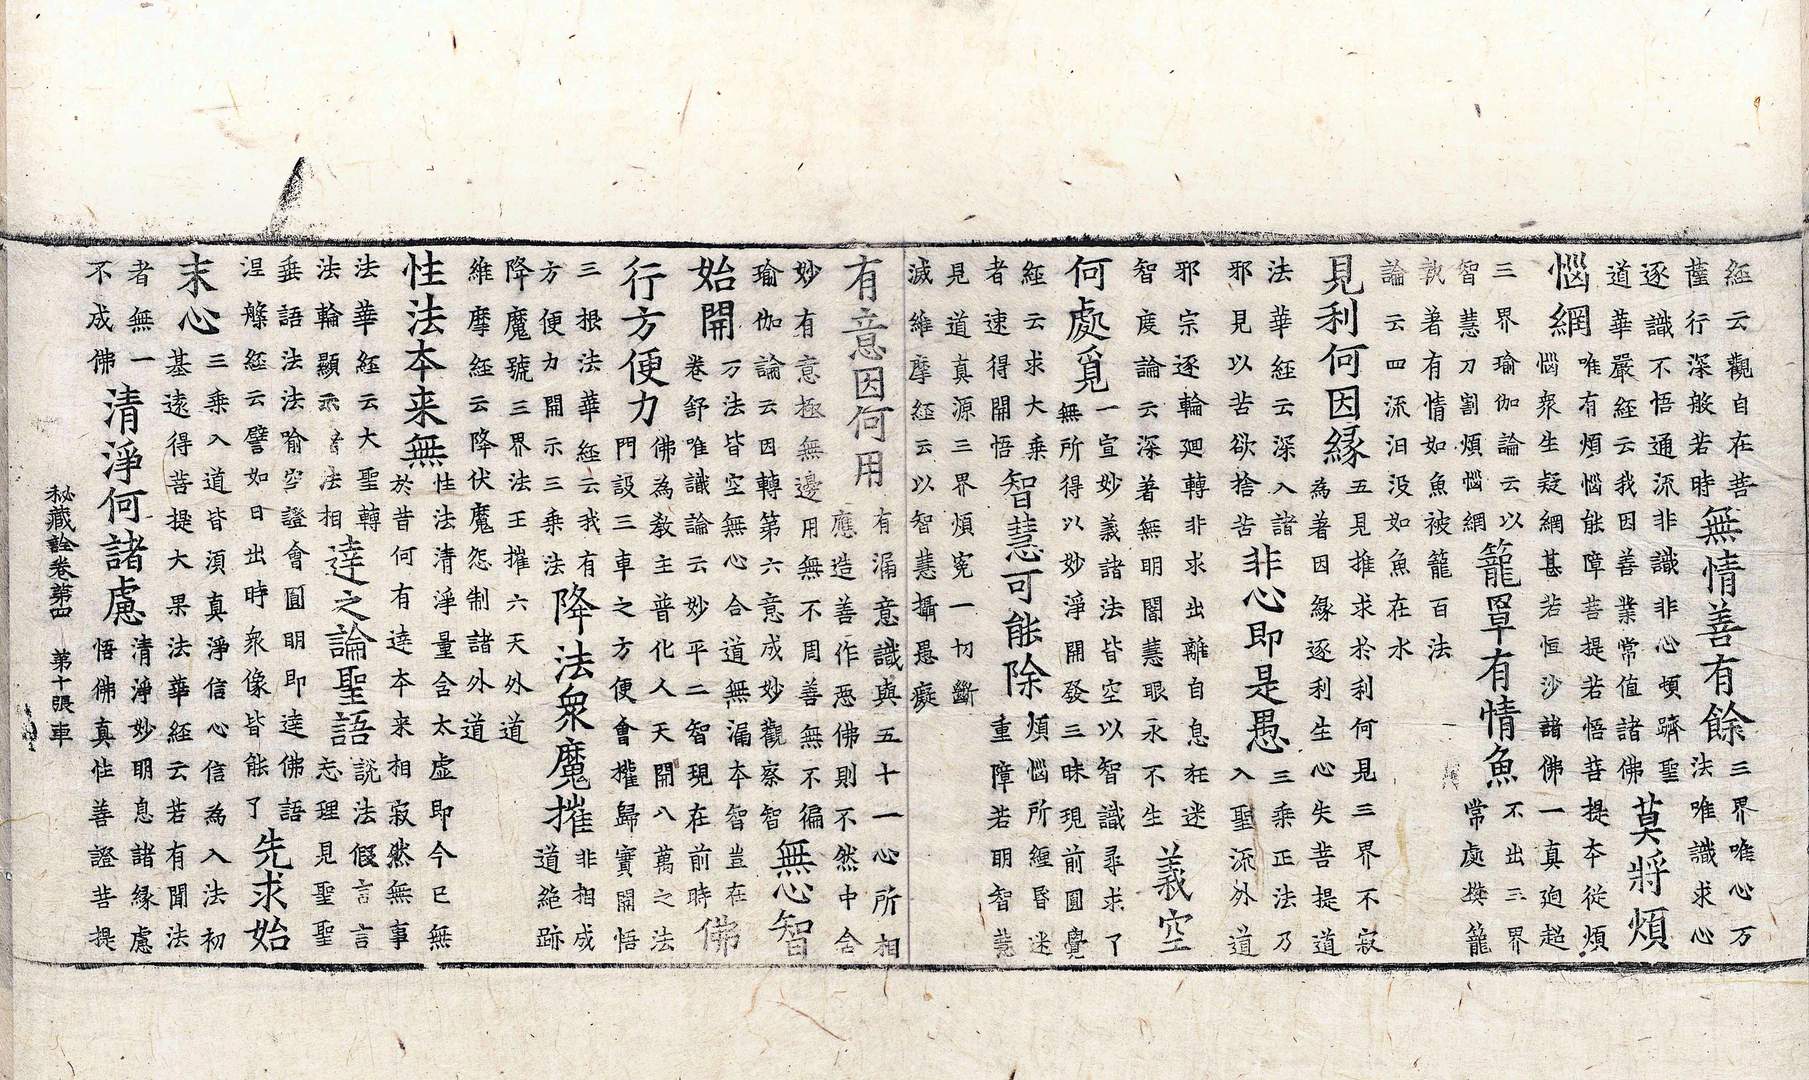 經云觀自在菩
薩行深般若時
無情善有餘
三界唯心万
法唯識求心
逐識不悟通流非識非心煩躋聖
道華嚴經云我因善業常值諸佛
莫將煩
惱網
唯有煩惱能障菩提若悟菩提本從煩
惱衆生疑網甚若恒沙諸佛一真逈超
三界瑜伽論云以
智慧刀割煩惱網
籠罩有情魚
不出三界
常處樊籠
執著有情如魚被籠百法
論云四流汩没如魚在水
見利何因緣
五見推求於利何見三界不寂
為著因緣逐利生心失菩提道
法華經云深入諸
邪見以苦欲捨苦
非心即是愚
三乘正法乃
入聖流外道
邪宗逐輪廻轉非求出離自息狂迷
智度論云深著無明闇慧眼永不生
義空
何處覓
一宣妙義諸法皆空以智識尋求了
無所得以妙淨開發三昧現前圓覺
經云求大乘
者速得開悟
智慧可能除
煩惱所纏昏迷
重障若明智慧
見道真源三界煩寃一切斷
滅維摩經云以智慧攝愚癡
有意因何用
有漏意識與五十一心所相
應造善作惡佛則不然中舍
妙有意極無邊用無不周善無不徧
瑜伽論云因轉第六意成妙觀察智
無心智
始開
万法皆空無心合道無漏本智豈在
卷舒唯識論云妙平二智現在前時
佛
行方便力
佛為教主普化人天開八萬之法
門設三車之方便會權歸實開悟
三根法華經云我有
方便力開示三乘法
降法衆魔摧
非相成
道絶跡
降魔號三界法王摧六天外道
維摩經云降伏魔怨制諸外道
性法本来無
性法清淨量含太虛即今已無
於昔何有達本来相寂然無事
法華經云大聖轉
法輪顯示法相
達之論聖語
說法假言言
志理見聖聖
垂語法法喻空證會圓明即達佛語
涅槃經云譬如日出時衆像皆能了
先求始
末心
三乘入道皆須真淨信心信為入法初
基遠得菩提大果法華經云若有聞法
者無一
不成佛
清淨何諸慮
清淨妙明息諸緣慮
悟佛真性善證菩提
秘藏詮卷第四 第十張 車